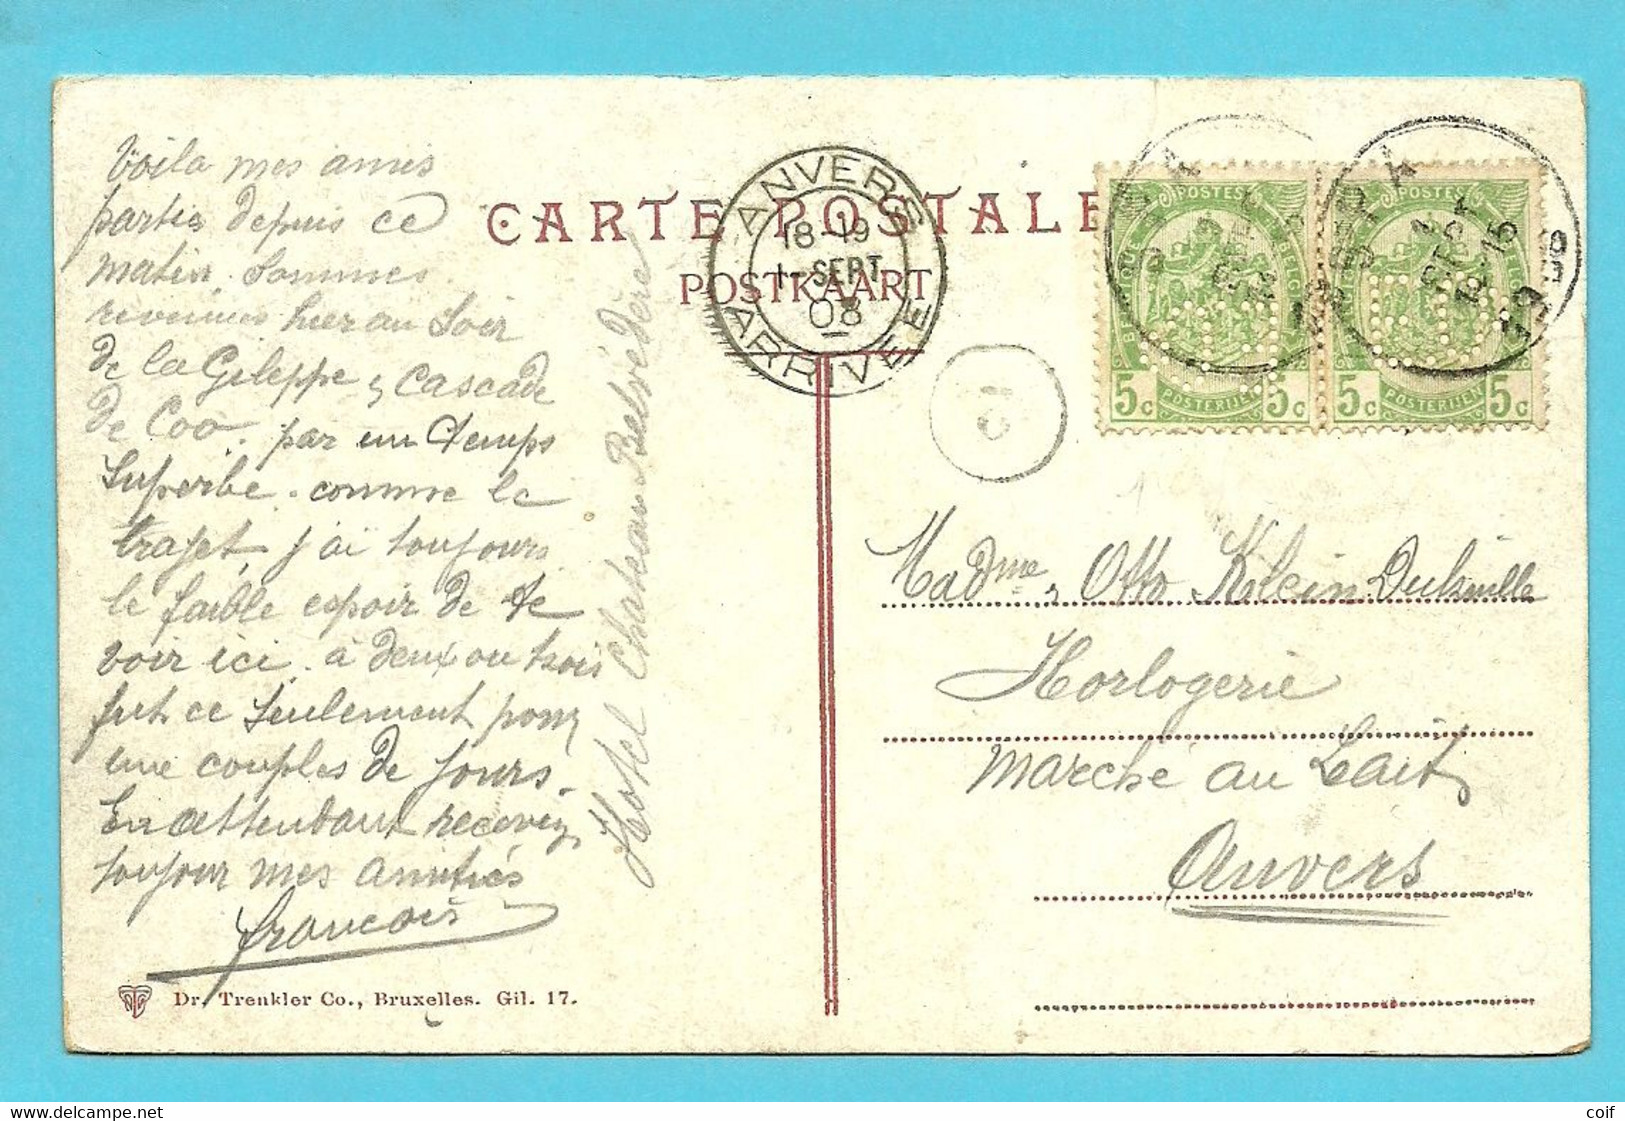 Voila mes amis
partie depuis ce
matin. Sommes
revenues hier au Soir
de la Gileppe & Cascade
de Coo. par un temps
Superbe. comme le
trajet, j'ai toujours
le faible espoir de te
voir ici. à deux ou trois
fut ce Seulement pour
une couples de jours.
En attendant recevez
toujour mes amitiés
francois
Hotel Chateau Belvédère
Dr. Trenkler Co., Bruxelles. Gil. 17.
CARTE POSTALE
POSTKAART
ANVERS
18-19
1 SEPT
08
ARRIVÉE
POSTES
5c POSTERIJEN 5c
POSTES
5c POSTERIJEN 5c
Madme Otto Klein
Horlogerie
Marché au Lait
Anvers
coif